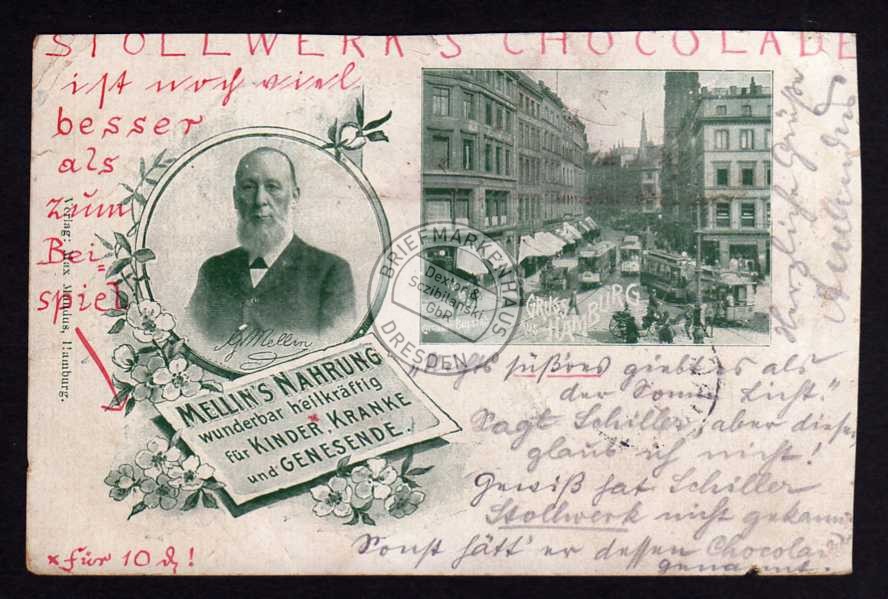 STOLLWERK'S CHOCOLADE
ist noch viel
besser
als
zum
Bei-
spiel
Verlag: Max Mundus, Hamburg.
G. Mellin
MELLIN'S NAHRUNG
wunderbar heilkräftig
für KINDER, KRANKE
und GENESENDE.
x für 10 ₰!
GRUSS
AUS HAMBURG
BRIEFMARKENHAUS
Dexler &
Sczibilanski
GbR
DRESDEN
Herzliche Grüße
süß'res giebt es als
der Sonne Licht."
Sagt Schiller, aber dieses
glaub ich nicht!
Gewiß hat Schiller
Stollwerk nicht gekannt
Sonst hätt' er dessen Chocolad
genannt.